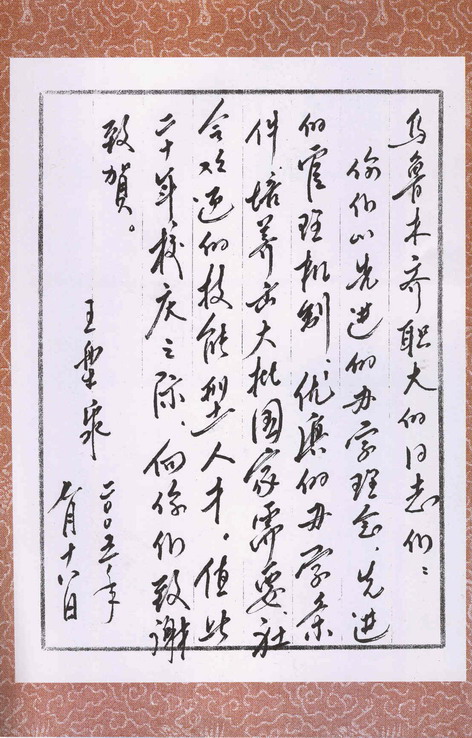 乌鲁木齐职大的同志们：
你们以先进的办学理念、先进
的管理机制、优的办学条
件培养出大批国家需要、社
会欢迎的技能型人才。值此
二十年校庆之际、向你们致谢
致贺。
王
二〇〇五年
七月十八日